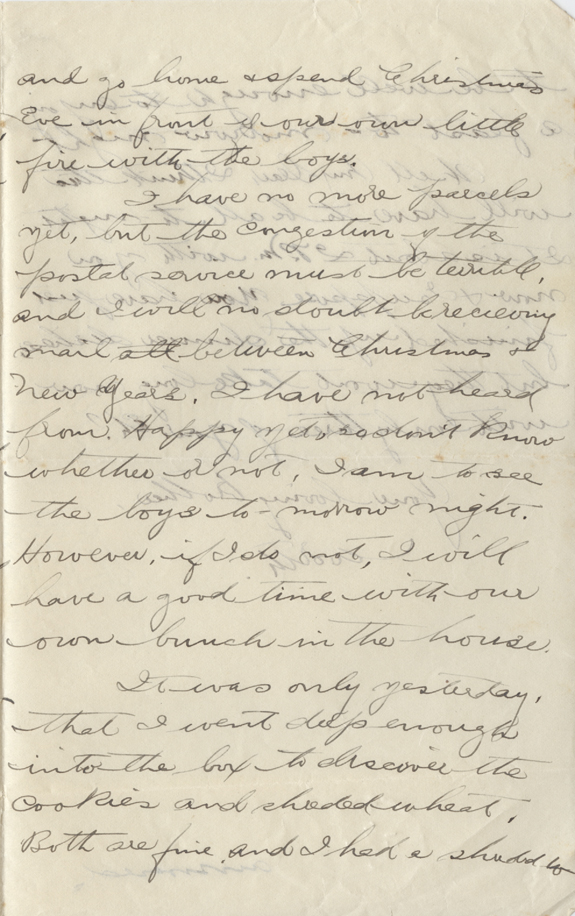 and go home & spend Christmas
Eve in front of our own little
fire with the boys.
I have no more parcels
yet, but the congestion of the
postal service must be terrible,
and I will no doubt be recieving
mail all between Christmas &
New Years. I have not heard
from Happy yet, so don't know
whether or not, I am to see
the boys to-morrow night.
However, if I do not, I will
have a good time with our
own bunch in the house.
It was only yesterday,
that I went deep enough
into the box to discover the
cookies and shreded wheat.
Both are fine, and I had a shreded w